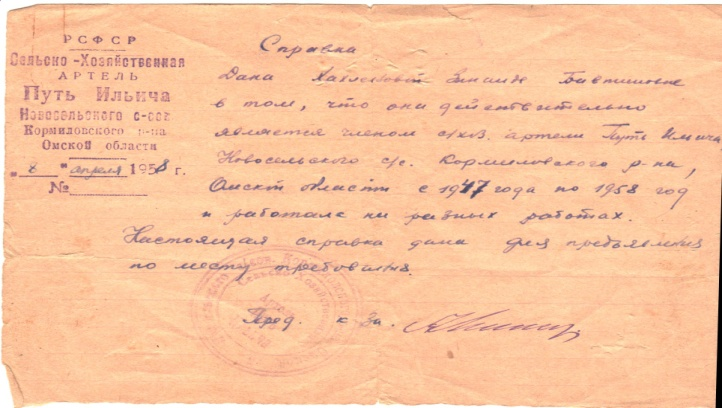 РСФСР
Сельско-Хозяйственная
АРТЕЛЬ
Путь Ильича
Новосельского с-сов
Кормиловского р-на
Омской области
"8" апреля 1958 г.
№
Справка
Дана
в том, что она действительно
является членом с/хоз. артели Путь Ильича
Новосельского с/с. Кормиловского р-на,
Омской области с 1947 года по 1958 год
и работала на разных работах.
Настоящая справка дана для предъявления
по месту требования.
Пред. к-за.